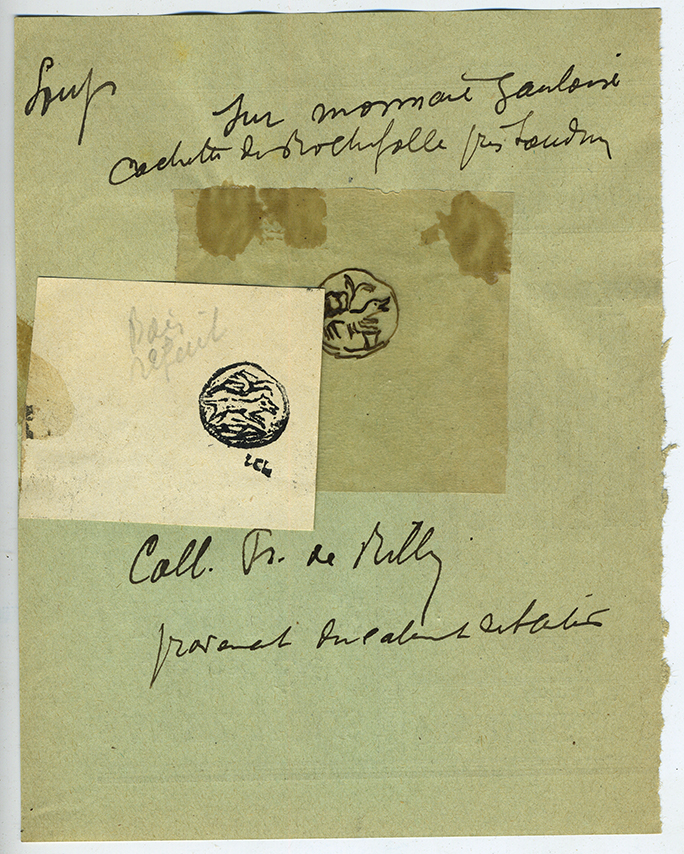 Loup
Sur monnaie Gauloise
Cachette de Rochefolle près Loudun
Bois
refait
Coll. Fr. de Rilly
provenant du cabinet